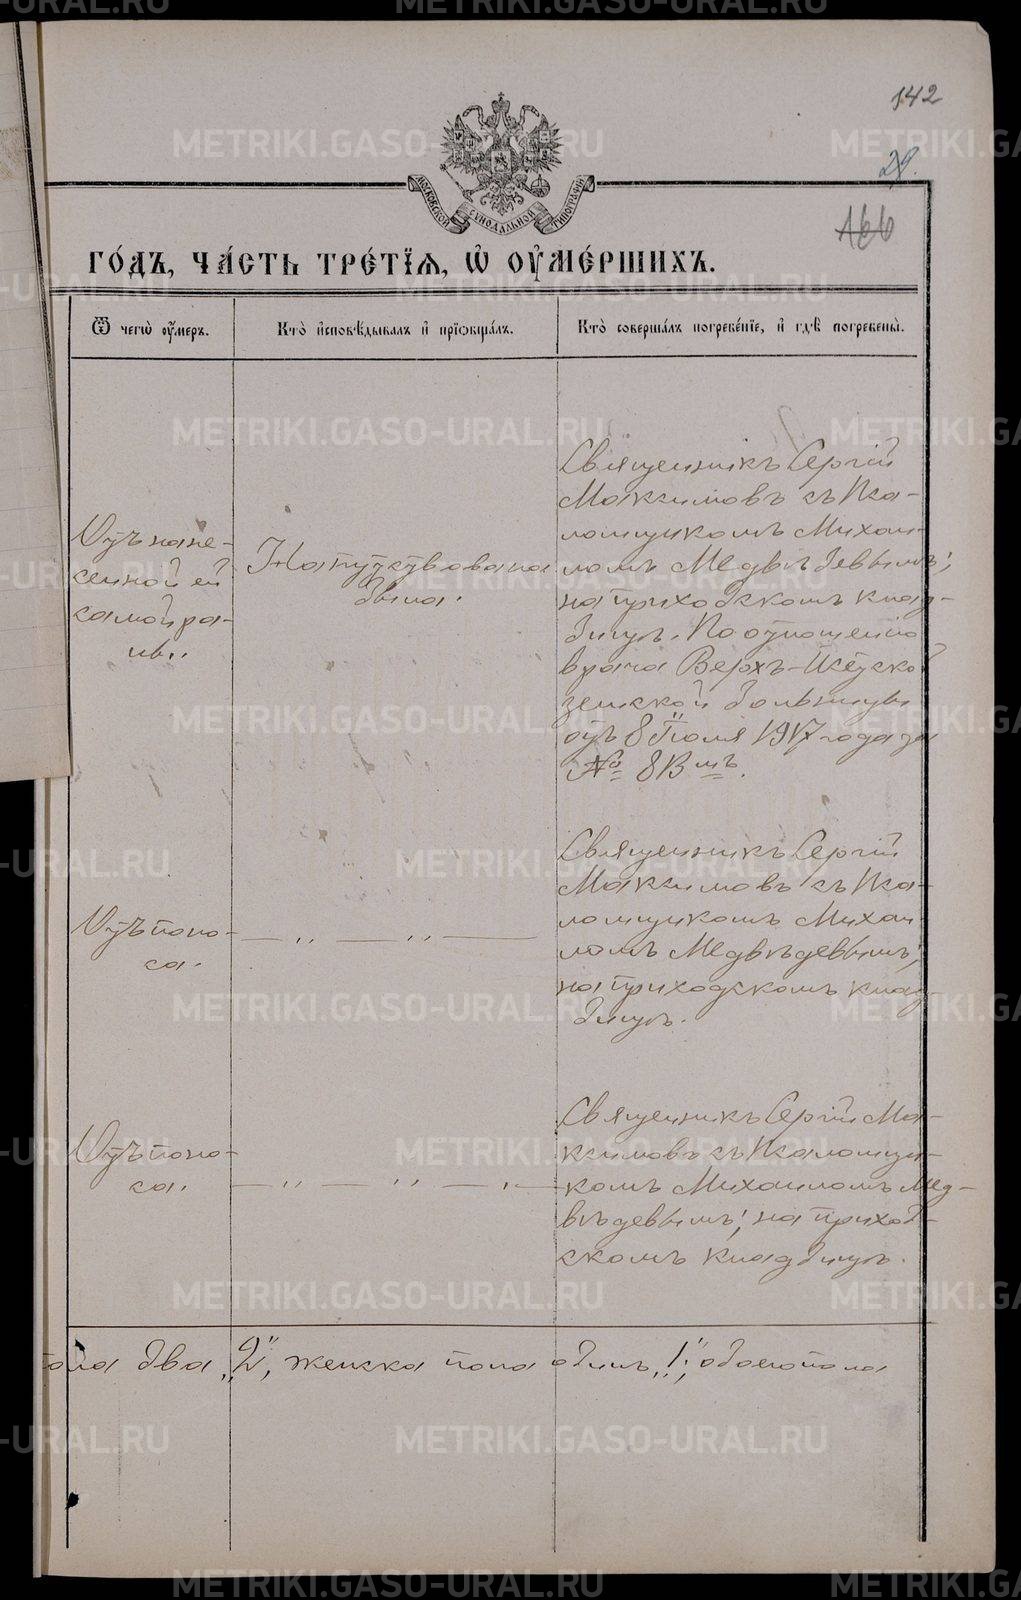 142
29.
166
МОСКОВСКОЙ СѴНОДАЛЬНОЙ ТИПОГРАФІИ
ГО́ДЪ, ЧА́СТЬ ТРЕ́ТІѦ, Ѡ҆ ОУ҆МЕ́РШИХЪ.
Ѿ чегѡ̀ оу҆́меръ.
Кто̀ и҆сповѣ́дывалъ и҆ прїѻбща́лъ.
Кто̀ соверша́лъ погребе́нїе, и҆ гдѣ̀ погребены̀.
Отъ нане-
сенной ей
самой ра-
ны.
Напутствована
была.
Священникъ Сергій
Максимовъ съ Пса-
ломщикомъ Михаи-
ломъ Медвѣдевымъ;
на приходскомъ клад-
бищѣ. По отношенію
врача Верхъ-Исетской
земской больницы
отъ 8 Іюля 1917 года за
№ 813мъ.
Отъ поно-
са.
— „ — „ —
Священникъ Сергій
Максимовъ съ Пса-
ломщикомъ Михаи-
ломъ Медвѣдевымъ;
на приходскомъ клад-
бищѣ.
Отъ поно-
са.
— „ — „ — „ —
Священникъ Сергій Ма-
ксимовъ съ Псаломщи-
комъ Михаиломъ Мед-
вѣдевымъ; на приход-
скомъ кладбищѣ.
пола два „2“, женска пола одинъ „1“; обоего пола
METRIKI.GASO-URAL.RU